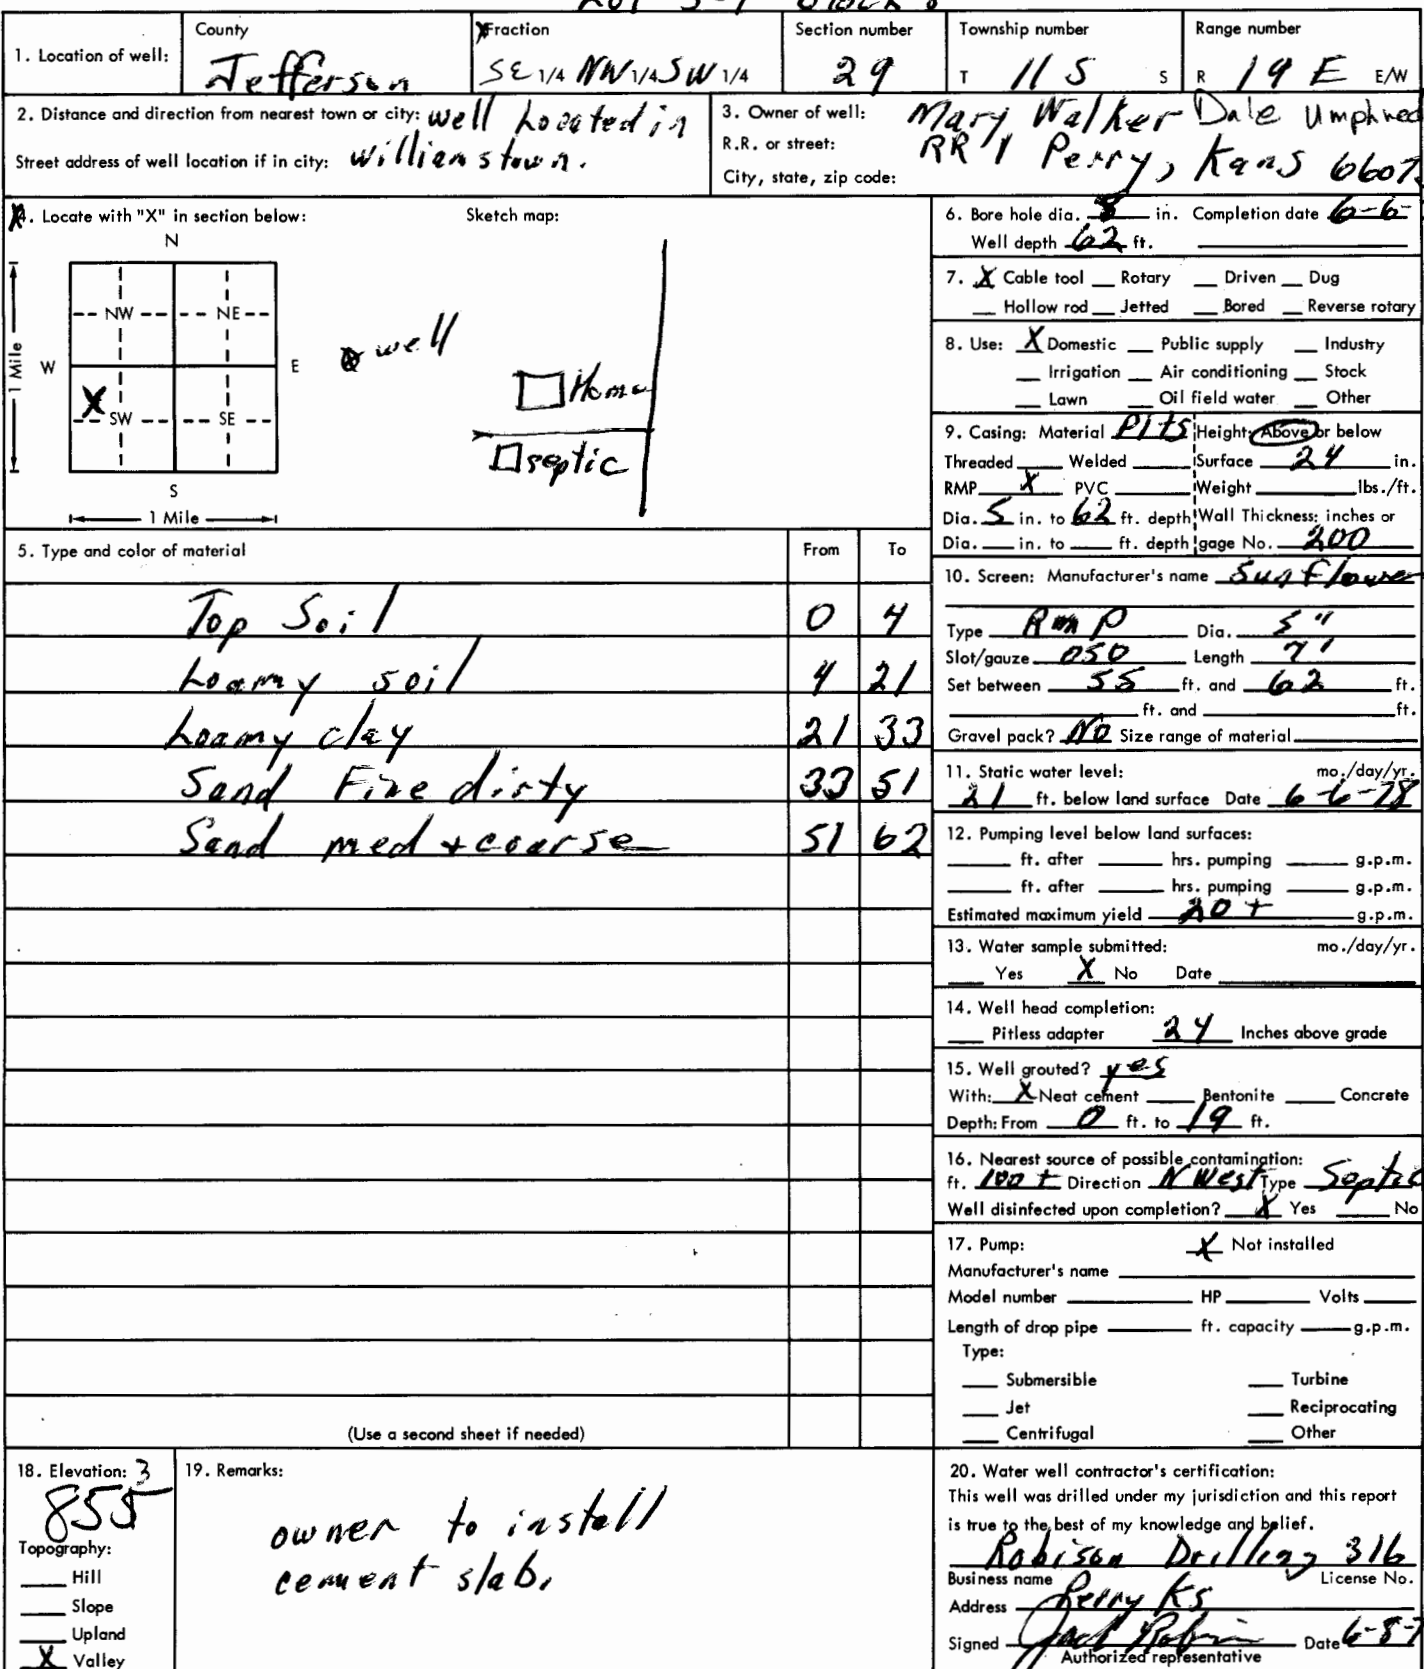 County Fraction Section number Township number Range number
1. Location of well: Jefferson SE 1/4 NW 1/4 SW 1/4 29 T 11 S S R 19 E E/W
2. Distance and direction from nearest town or city: well Located in
Street address of well location if in city: Williamstown.
3. Owner of well: Mary Walker Dale Umphred
R.R. or street: RR 1 Perry, Kans 6607
City, state, zip code:
4. Locate with "X" in section below: Sketch map:
N
NW NE
W E
X SW SE
S
1 Mile
1 Mile
well
Home
septic
5. Type and color of material From To
Top Soil 0 4
Loamy soil 4 21
Loamy clay 21 33
Sand Fine dirty 33 51
Sand med + coarse 51 62
(Use a second sheet if needed)
6. Bore hole dia. 8 in. Completion date 6-6-
Well depth 62 ft.
7. X Cable tool __ Rotary __ Driven __ Dug
__ Hollow rod __ Jetted __ Bored __ Reverse rotary
8. Use: X Domestic __ Public supply __ Industry
__ Irrigation __ Air conditioning __ Stock
__ Lawn __ Oil field water __ Other
9. Casing: Material Plts Height: Above or below
Threaded ___ Welded ___ Surface 24 in.
RMP X PVC ___ Weight ___ lbs./ft.
Dia. 5 in. to 62 ft. depth Wall Thickness: inches or
Dia. ___ in. to ___ ft. depth gage No. 200
10. Screen: Manufacturer's name Sunflower
Type RMP Dia. 5"
Slot/gauze 050 Length 7'
Set between 55 ft. and 62 ft.
___ ft. and ___ ft.
Gravel pack? No Size range of material ___
11. Static water level: mo./day/yr.
21 ft. below land surface Date 6-6-78
12. Pumping level below land surfaces:
___ ft. after ___ hrs. pumping ___ g.p.m.
___ ft. after ___ hrs. pumping ___ g.p.m.
Estimated maximum yield 20+ g.p.m.
13. Water sample submitted: mo./day/yr.
__ Yes X No Date ___
14. Well head completion:
__ Pitless adapter 24 Inches above grade
15. Well grouted? yes
With: X Neat cement ___ Bentonite ___ Concrete
Depth: From 0 ft. to 19 ft.
16. Nearest source of possible contamination:
ft. 100+ Direction N West Type Septic
Well disinfected upon completion? X Yes ___ No
17. Pump: X Not installed
Manufacturer's name ___
Model number ___ HP ___ Volts ___
Length of drop pipe ___ ft. capacity ___ g.p.m.
Type:
__ Submersible __ Turbine
__ Jet __ Reciprocating
__ Centrifugal __ Other
18. Elevation: 3
855
Topography:
__ Hill
__ Slope
__ Upland
X Valley
19. Remarks:
owner to install
cement slab.
20. Water well contractor's certification:
This well was drilled under my jurisdiction and this report
is true to the best of my knowledge and belief.
Robison Drilling 316
Business name License No.
Address Perry Ks
Signed Jack Robison Date 6-8-7
Authorized representative